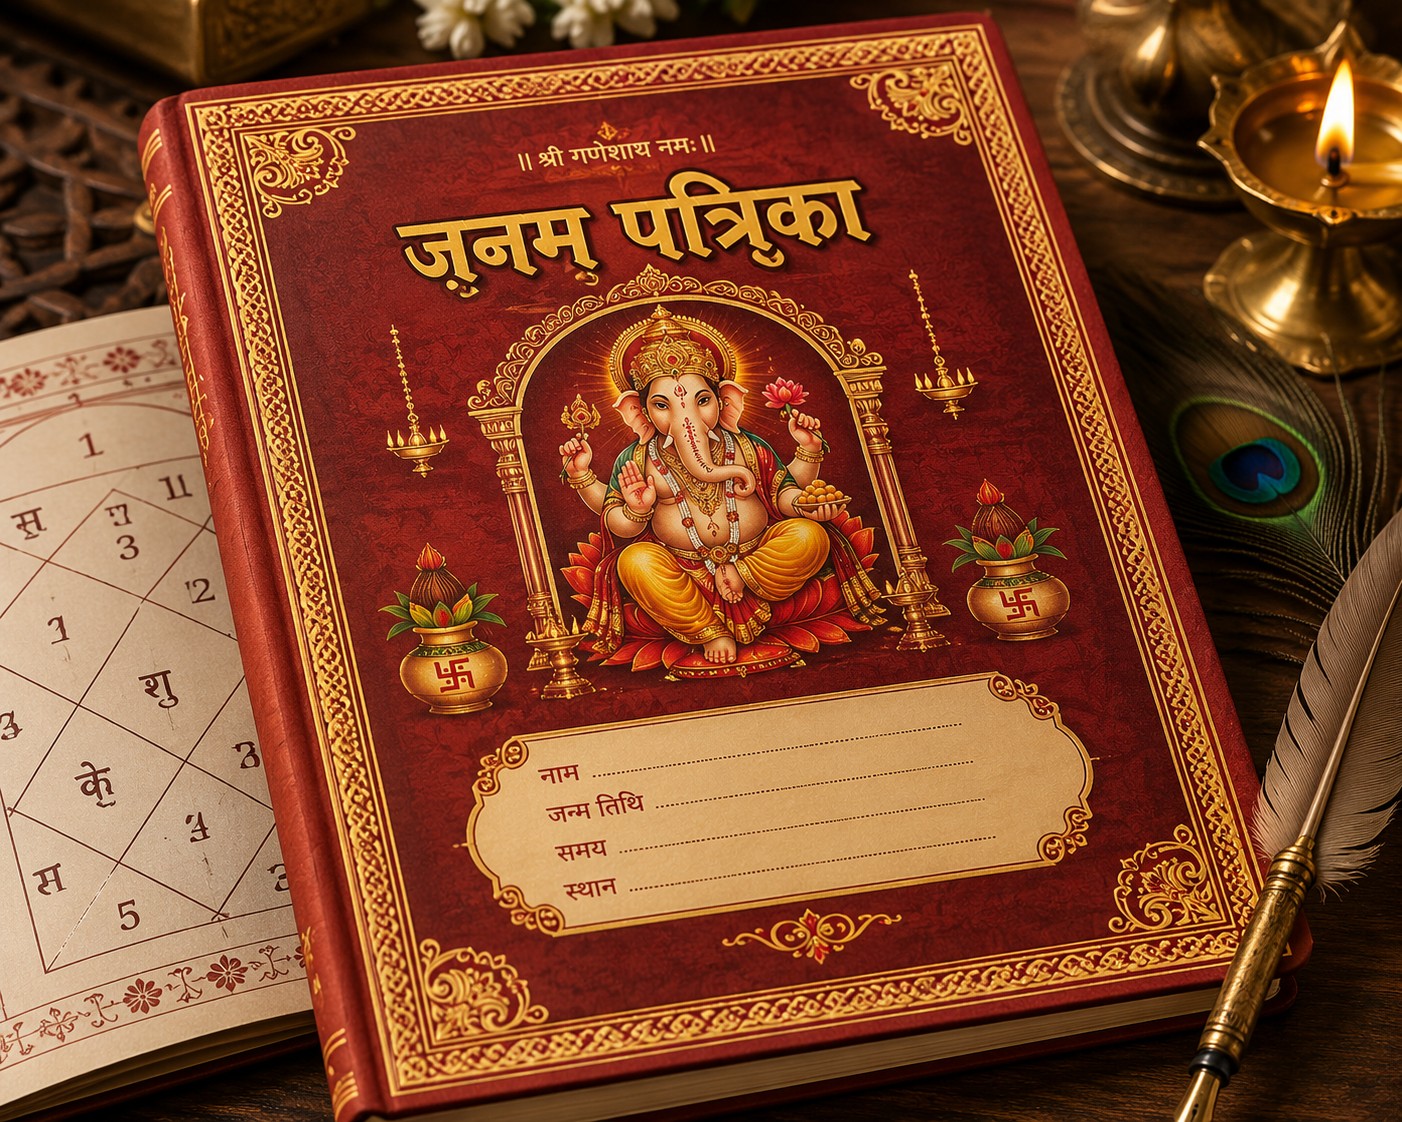 ॥ श्री गणेशाथ नमः॥
जनम पत्रिका
नाम
जन्म तिथि
समय
स्थान
1
सु
11
3
2
1
शु
के
स
5